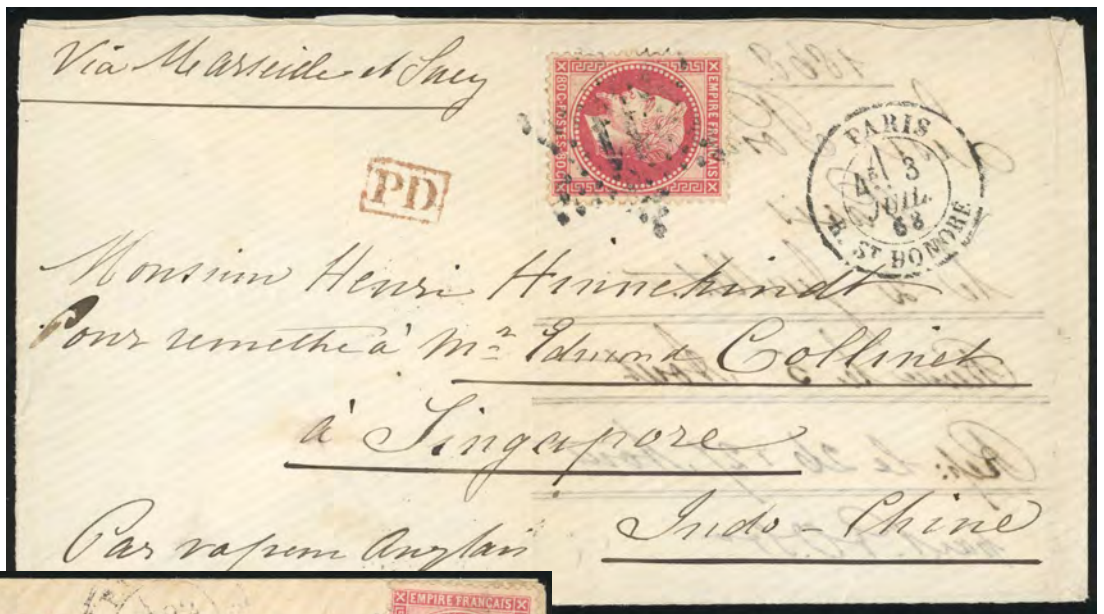 Via Marseille et Suez
EMPIRE FRANÇAIS
80C·POSTES·80C
PARIS
3
JUIL.
68
R. ST HONORÉ
PD
Monsieur Henri Hinnekindt
Pour remettre à Mr Edmond Collinet
à Singapore
Indo-Chine
Par vapeur Anglais
EMPIRE FRANÇAIS